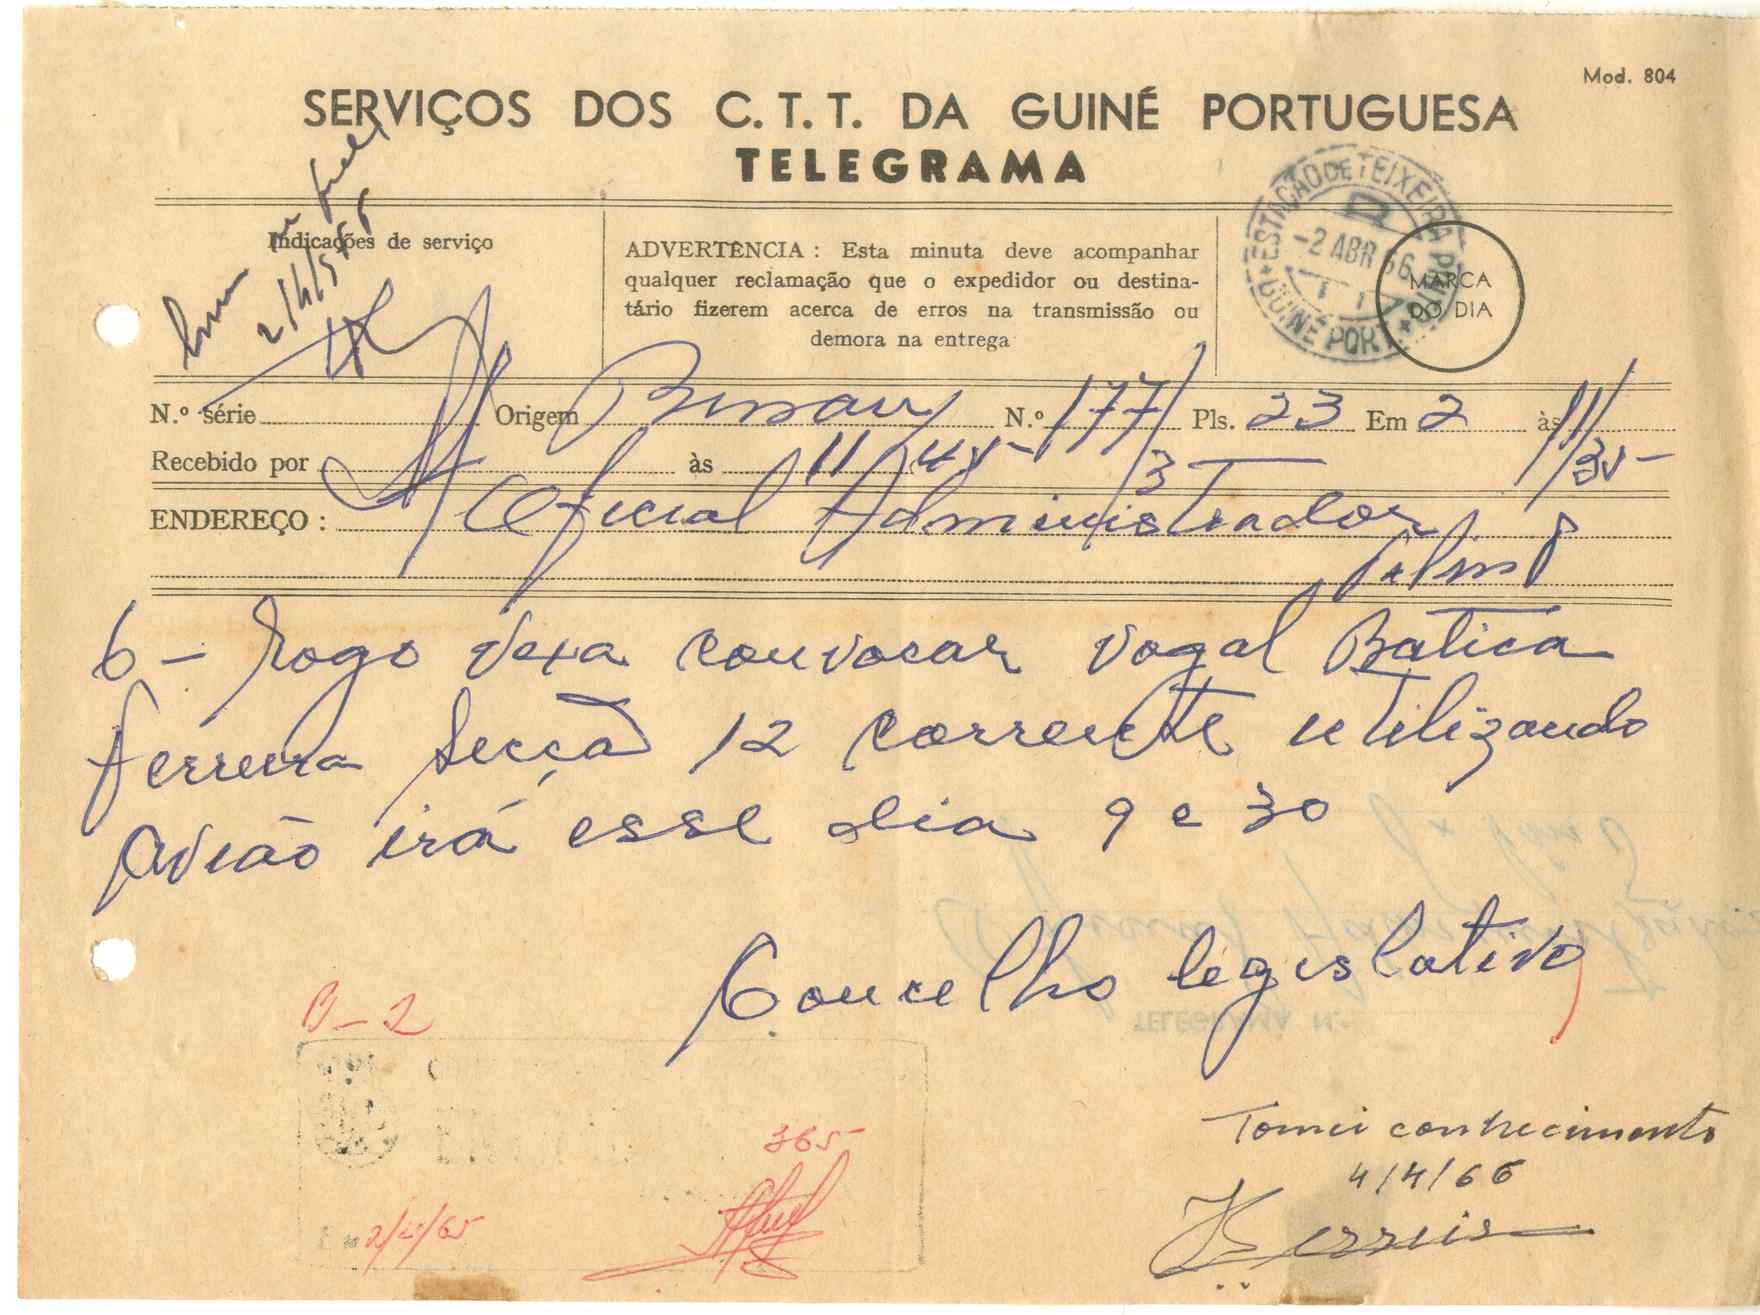 Mod. 804
SERVIÇOS DOS C. T. T. DA GUINÉ PORTUGUESA
TELEGRAMA
Indicações de serviço
ADVERTÊNCIA : Esta minuta deve acompanhar
qualquer reclamação que o expedidor ou destina-
tário fizerem acerca de erros na transmissão ou
demora na entrega
ESTAÇÃO DE TEIXEIRA PINTO
-2 ABR 66
GUINÉ PORT.
MARCA
DO DIA
N.º série Origem Bissau N.º 177/3 Pls. 23 Em 2 às 11/35
Recebido por às 11/45
ENDEREÇO : Oficial Administrador
6 - Rogo Vexa convocar vogal Batica
Ferreira Secção 12 corrente utilizando
Avião irá esse dia 9 e 30
Concelho legislativo
TELEGRAMA N.º
365
2/4/65
Tomei conhecimento
4/4/66
Ferreira